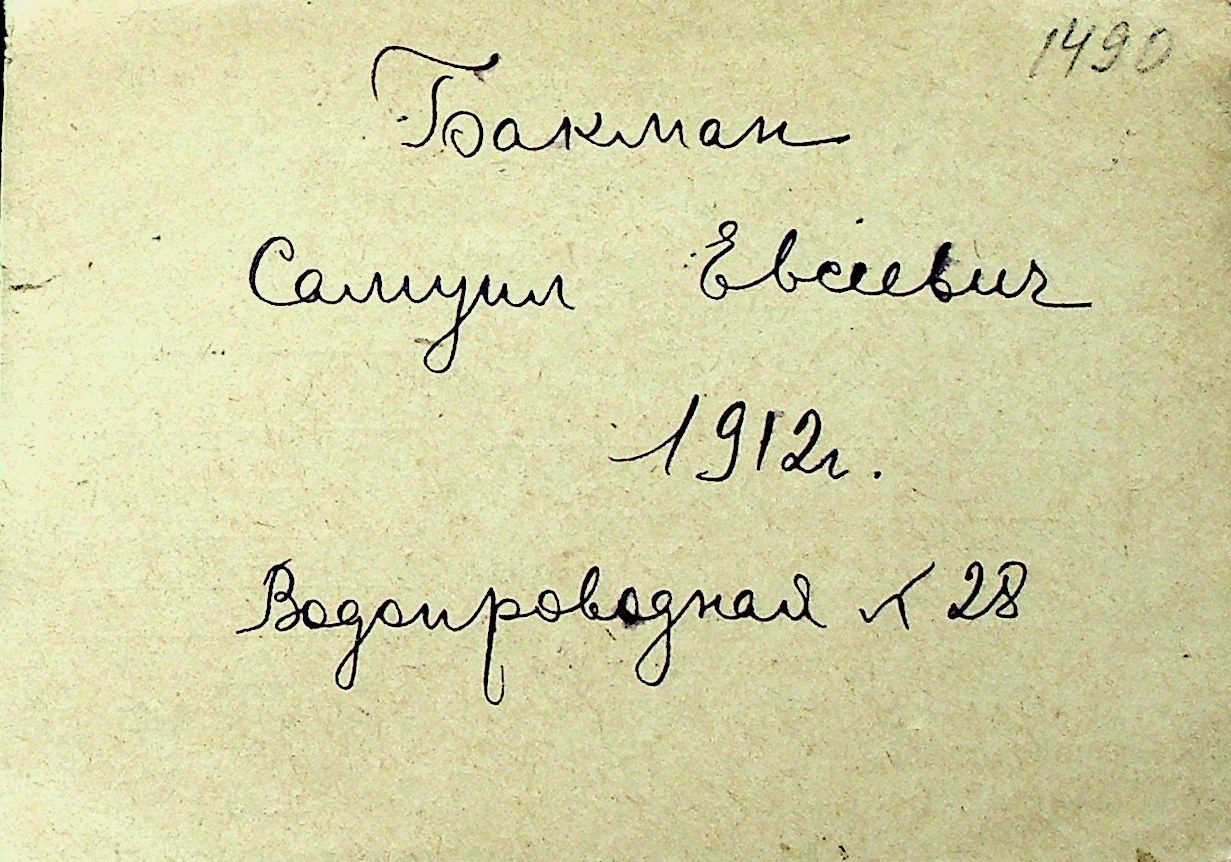 1490
Бакман
Самуил Евсеевич
1912г.
Водопроводная № 28